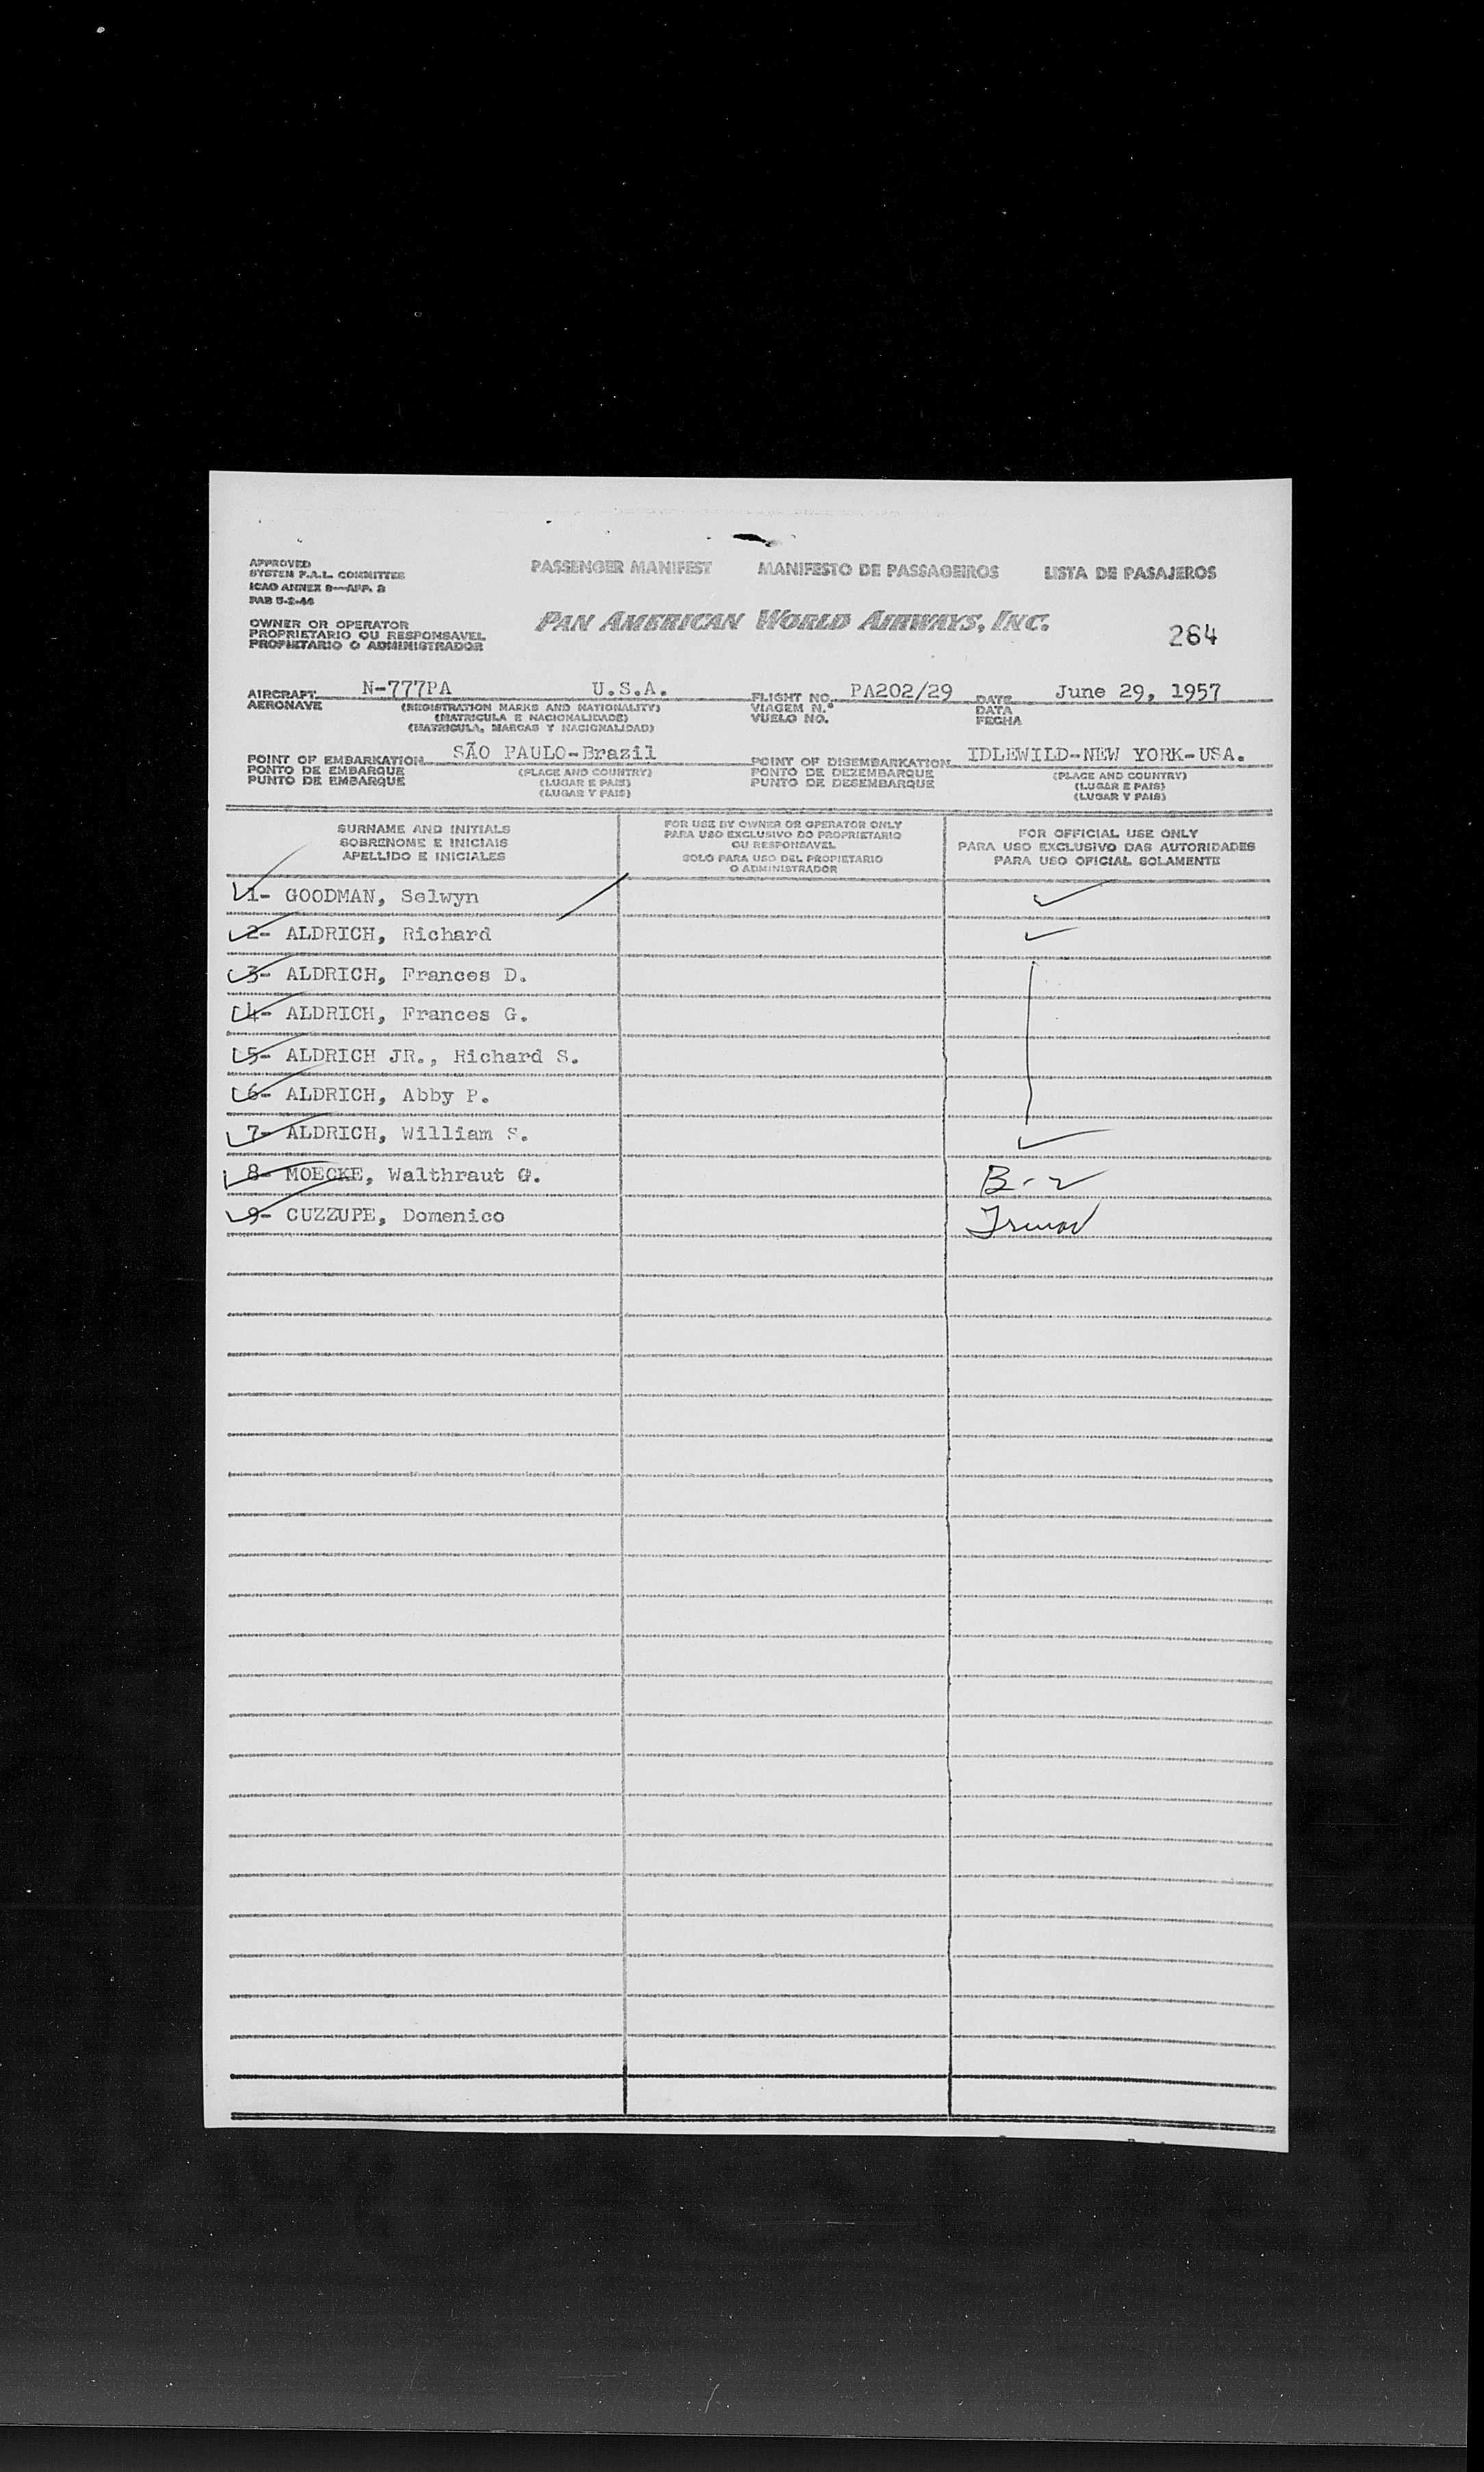 APPROVED
SYSTEM F.A.L. COMMITTEE
ICAO ANNEX 9—APP. 3
PASSENGER MANIFEST MANIFESTO DE PASSAGEIROS LISTA DE PASAJEROS
OWNER OR OPERATOR
PROPRIETARIO OU RESPONSAVEL
PROPIETARIO O ADMINISTRADOR
PAN AMERICAN WORLD AIRWAYS, INC.
264
AIRCRAFT N-777PA U.S.A. FLIGHT NO. PA202/29 DATE June 29, 1957
AERONAVE (REGISTRATION MARKS AND NATIONALITY) VIAGEM N.º DATA
(MATRICULA E NACIONALIDADE) VUELO NO. FECHA
(MATRICULA, MARCAS Y NACIONALIDAD)
POINT OF EMBARKATION SÃO PAULO-Brazil POINT OF DISEMBARKATION IDLEWILD-NEW YORK-USA.
PONTO DE EMBARQUE (PLACE AND COUNTRY) PONTO DE DEZEMBARQUE (PLACE AND COUNTRY)
PUNTO DE EMBARQUE (LUGAR E PAIS) PUNTO DE DESEMBARQUE (LUGAR E PAIS)
(LUGAR Y PAIS) (LUGAR Y PAIS)
SURNAME AND INITIALS
SOBRENOME E INICIAIS
APELLIDO E INICIALES
FOR USE BY OWNER OR OPERATOR ONLY
PARA USO EXCLUSIVO DO PROPRIETARIO
OU RESPONSAVEL
SOLO PARA USO DEL PROPIETARIO
O ADMINISTRADOR
FOR OFFICIAL USE ONLY
PARA USO EXCLUSIVO DAS AUTORIDADES
PARA USO OFICIAL SOLAMENTE
1- GOODMAN, Selwyn
2- ALDRICH, Richard
3- ALDRICH, Frances D.
4- ALDRICH, Frances G.
5- ALDRICH JR., Richard S.
6- ALDRICH, Abby P.
7- ALDRICH, William S.
8- MOECKE, Walthraut G. B-2
9- CUZZUPE, Domenico